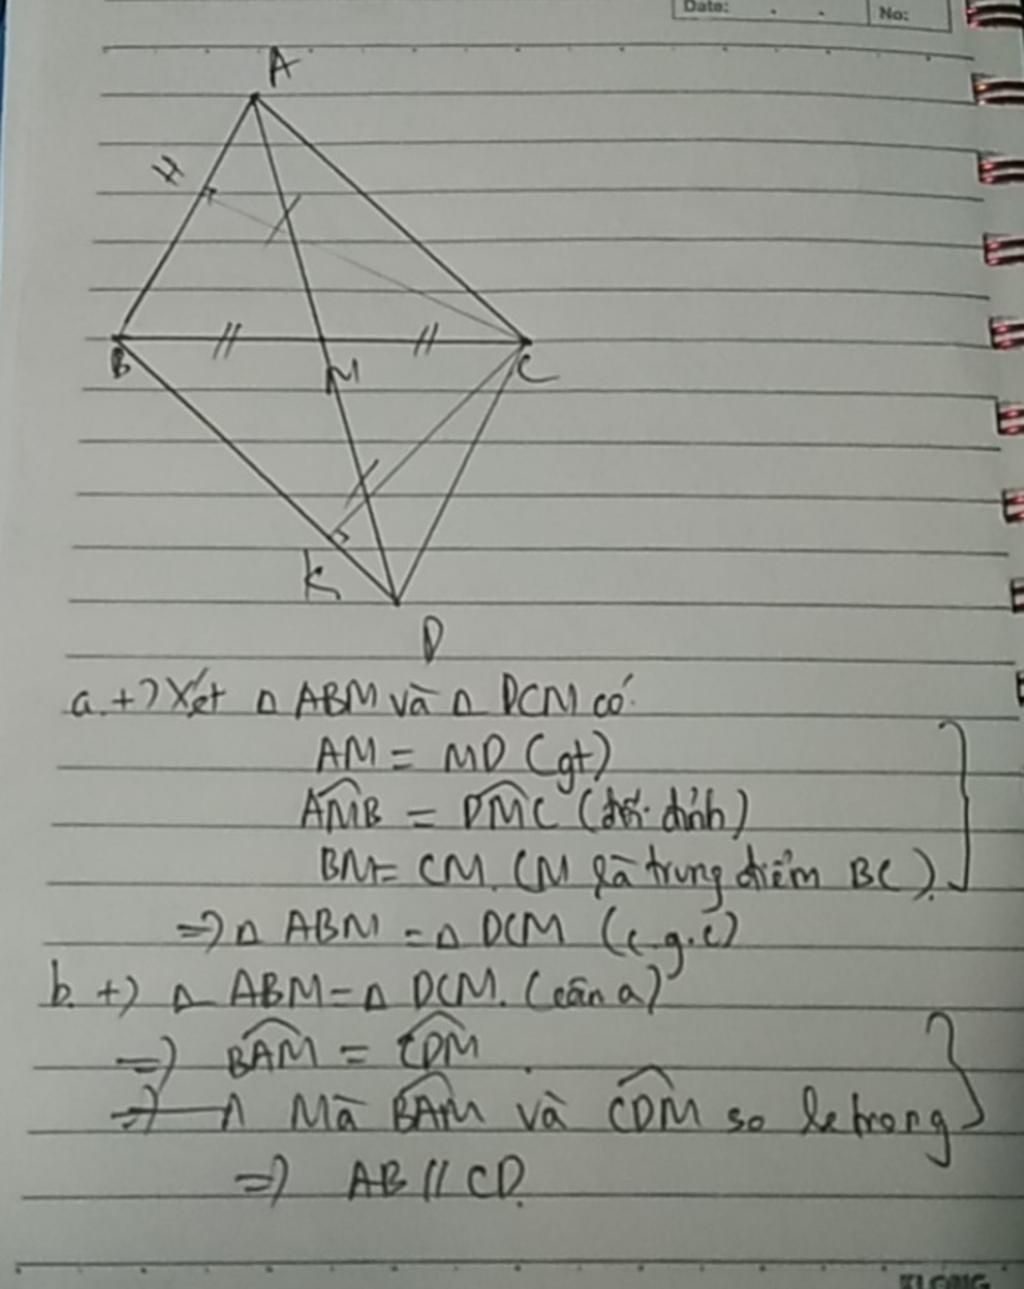 Date:
No:
A
H
B
M
C
K
D
a. +) Xét Δ ABM và Δ DCM có:
AM = MD (gt)
AMB = DMC (đối đỉnh)
BM = CM. (M là trung điểm BC).
=> Δ ABM = Δ DCM (c.g.c)
b. +) Δ ABM = Δ DCM. (câu a)
=> BAM = CDM
Mà BAM và CDM so le trong
=> AB // CD.
KLONG